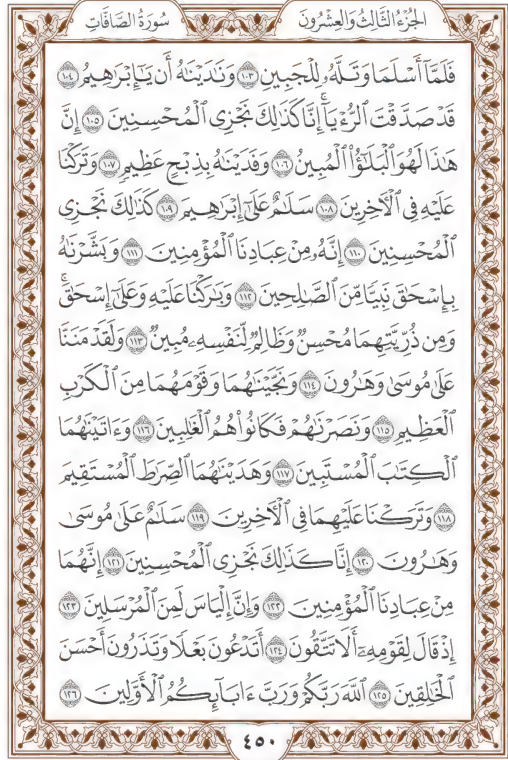 الجُزْءُ الثَّالِثُ وَالعِشْرُونَ
سُورَةُ الصَّافَّاتِ
فَلَمَّآ أَسْلَمَا وَتَلَّهُۥ لِلْجَبِينِ ١٠٣ وَنَٰدَيْنَٰهُ أَن يَٰٓإِبْرَٰهِيمُ ١٠٤
قَدْ صَدَّقْتَ ٱلرُّءْيَآ ۚ إِنَّا كَذَٰلِكَ نَجْزِى ٱلْمُحْسِنِينَ ١٠٥ إِنَّ
هَٰذَا لَهُوَ ٱلْبَلَٰٓؤُا۟ ٱلْمُبِينُ ١٠٦ وَفَدَيْنَٰهُ بِذِبْحٍ عَظِيمٍ ١٠٧ وَتَرَكْنَا
عَلَيْهِ فِى ٱلْءَاخِرِينَ ١٠٨ سَلَٰمٌ عَلَىٰٓ إِبْرَٰهِيمَ ١٠٩ كَذَٰلِكَ نَجْزِى
ٱلْمُحْسِنِينَ ١١٠ إِنَّهُۥ مِنْ عِبَادِنَا ٱلْمُؤْمِنِينَ ١١١ وَبَشَّرْنَٰهُ
بِإِسْحَٰقَ نَبِيًّا مِّنَ ٱلصَّٰلِحِينَ ١١٢ وَبَٰرَكْنَا عَلَيْهِ وَعَلَىٰٓ إِسْحَٰقَ ۚ
وَمِن ذُرِّيَّتِهِمَا مُحْسِنٌ وَظَالِمٌ لِّنَفْسِهِۦ مُبِينٌ ١١٣ وَلَقَدْ مَنَنَّا
عَلَىٰ مُوسَىٰ وَهَٰرُونَ ١١٤ وَنَجَّيْنَٰهُمَا وَقَوْمَهُمَا مِنَ ٱلْكَرْبِ
ٱلْعَظِيمِ ١١٥ وَنَصَرْنَٰهُمْ فَكَانُوا۟ هُمُ ٱلْغَٰلِبِينَ ١١٦ وَءَاتَيْنَٰهُمَا
ٱلْكِتَٰبَ ٱلْمُسْتَبِينَ ١١٧ وَهَدَيْنَٰهُمَا ٱلصِّرَٰطَ ٱلْمُسْتَقِيمَ
١١٨ وَتَرَكْنَا عَلَيْهِمَا فِى ٱلْءَاخِرِينَ ١١٩ سَلَٰمٌ عَلَىٰ مُوسَىٰ
وَهَٰرُونَ ١٢٠ إِنَّا كَذَٰلِكَ نَجْزِى ٱلْمُحْسِنِينَ ١٢١ إِنَّهُمَا
مِنْ عِبَادِنَا ٱلْمُؤْمِنِينَ ١٢٢ وَإِنَّ إِلْيَاسَ لَمِنَ ٱلْمُرْسَلِينَ ١٢٣
إِذْ قَالَ لِقَوْمِهِۦٓ أَلَا تَتَّقُونَ ١٢٤ أَتَدْعُونَ بَعْلًا وَتَذَرُونَ أَحْسَنَ
ٱلْخَٰلِقِينَ ١٢٥ ٱللَّهَ رَبَّكُمْ وَرَبَّ ءَابَآئِكُمُ ٱلْأَوَّلِينَ ١٢٦
٤٥٠